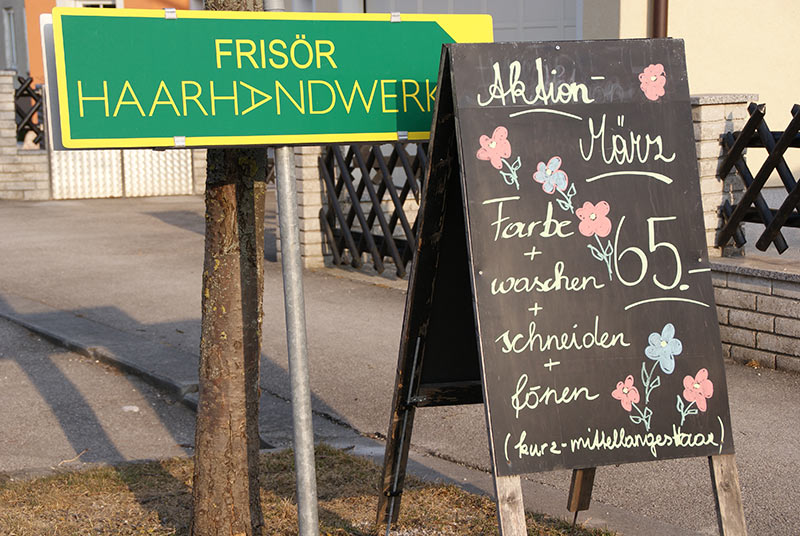 FRISÖR
HAARHANDWERK
Aktion-
März
Farbe
+
waschen
+
schneiden
+
fönen
65.-
(kurz-mittellanges Haar)